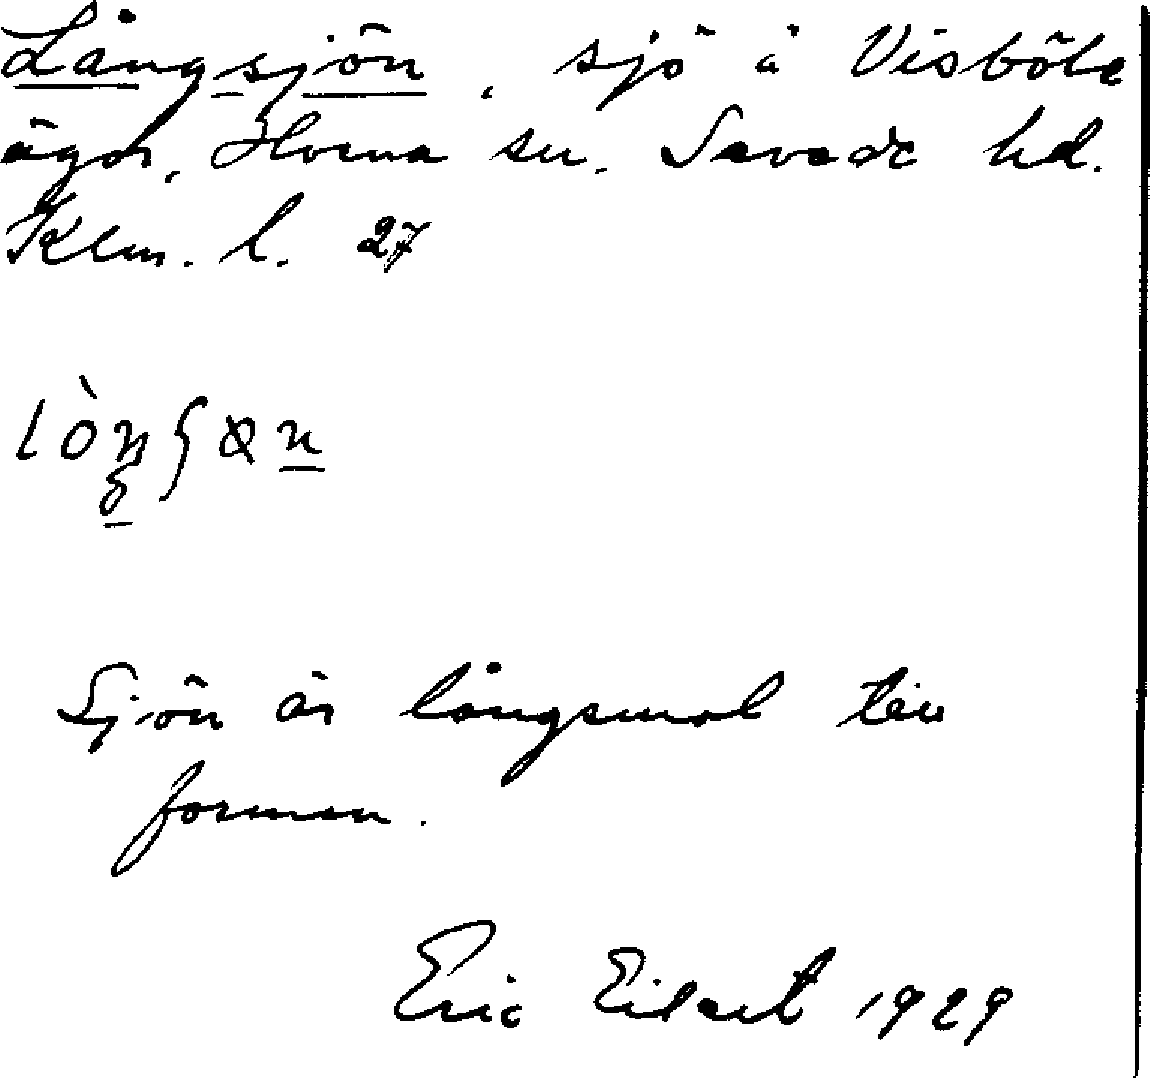 Långsjön, sjö å Visböle
ägor, Horna sn. Sevede hd.
Klm. l. 27
Sjön är långsmal till
formen.
Eric Eilert 1929